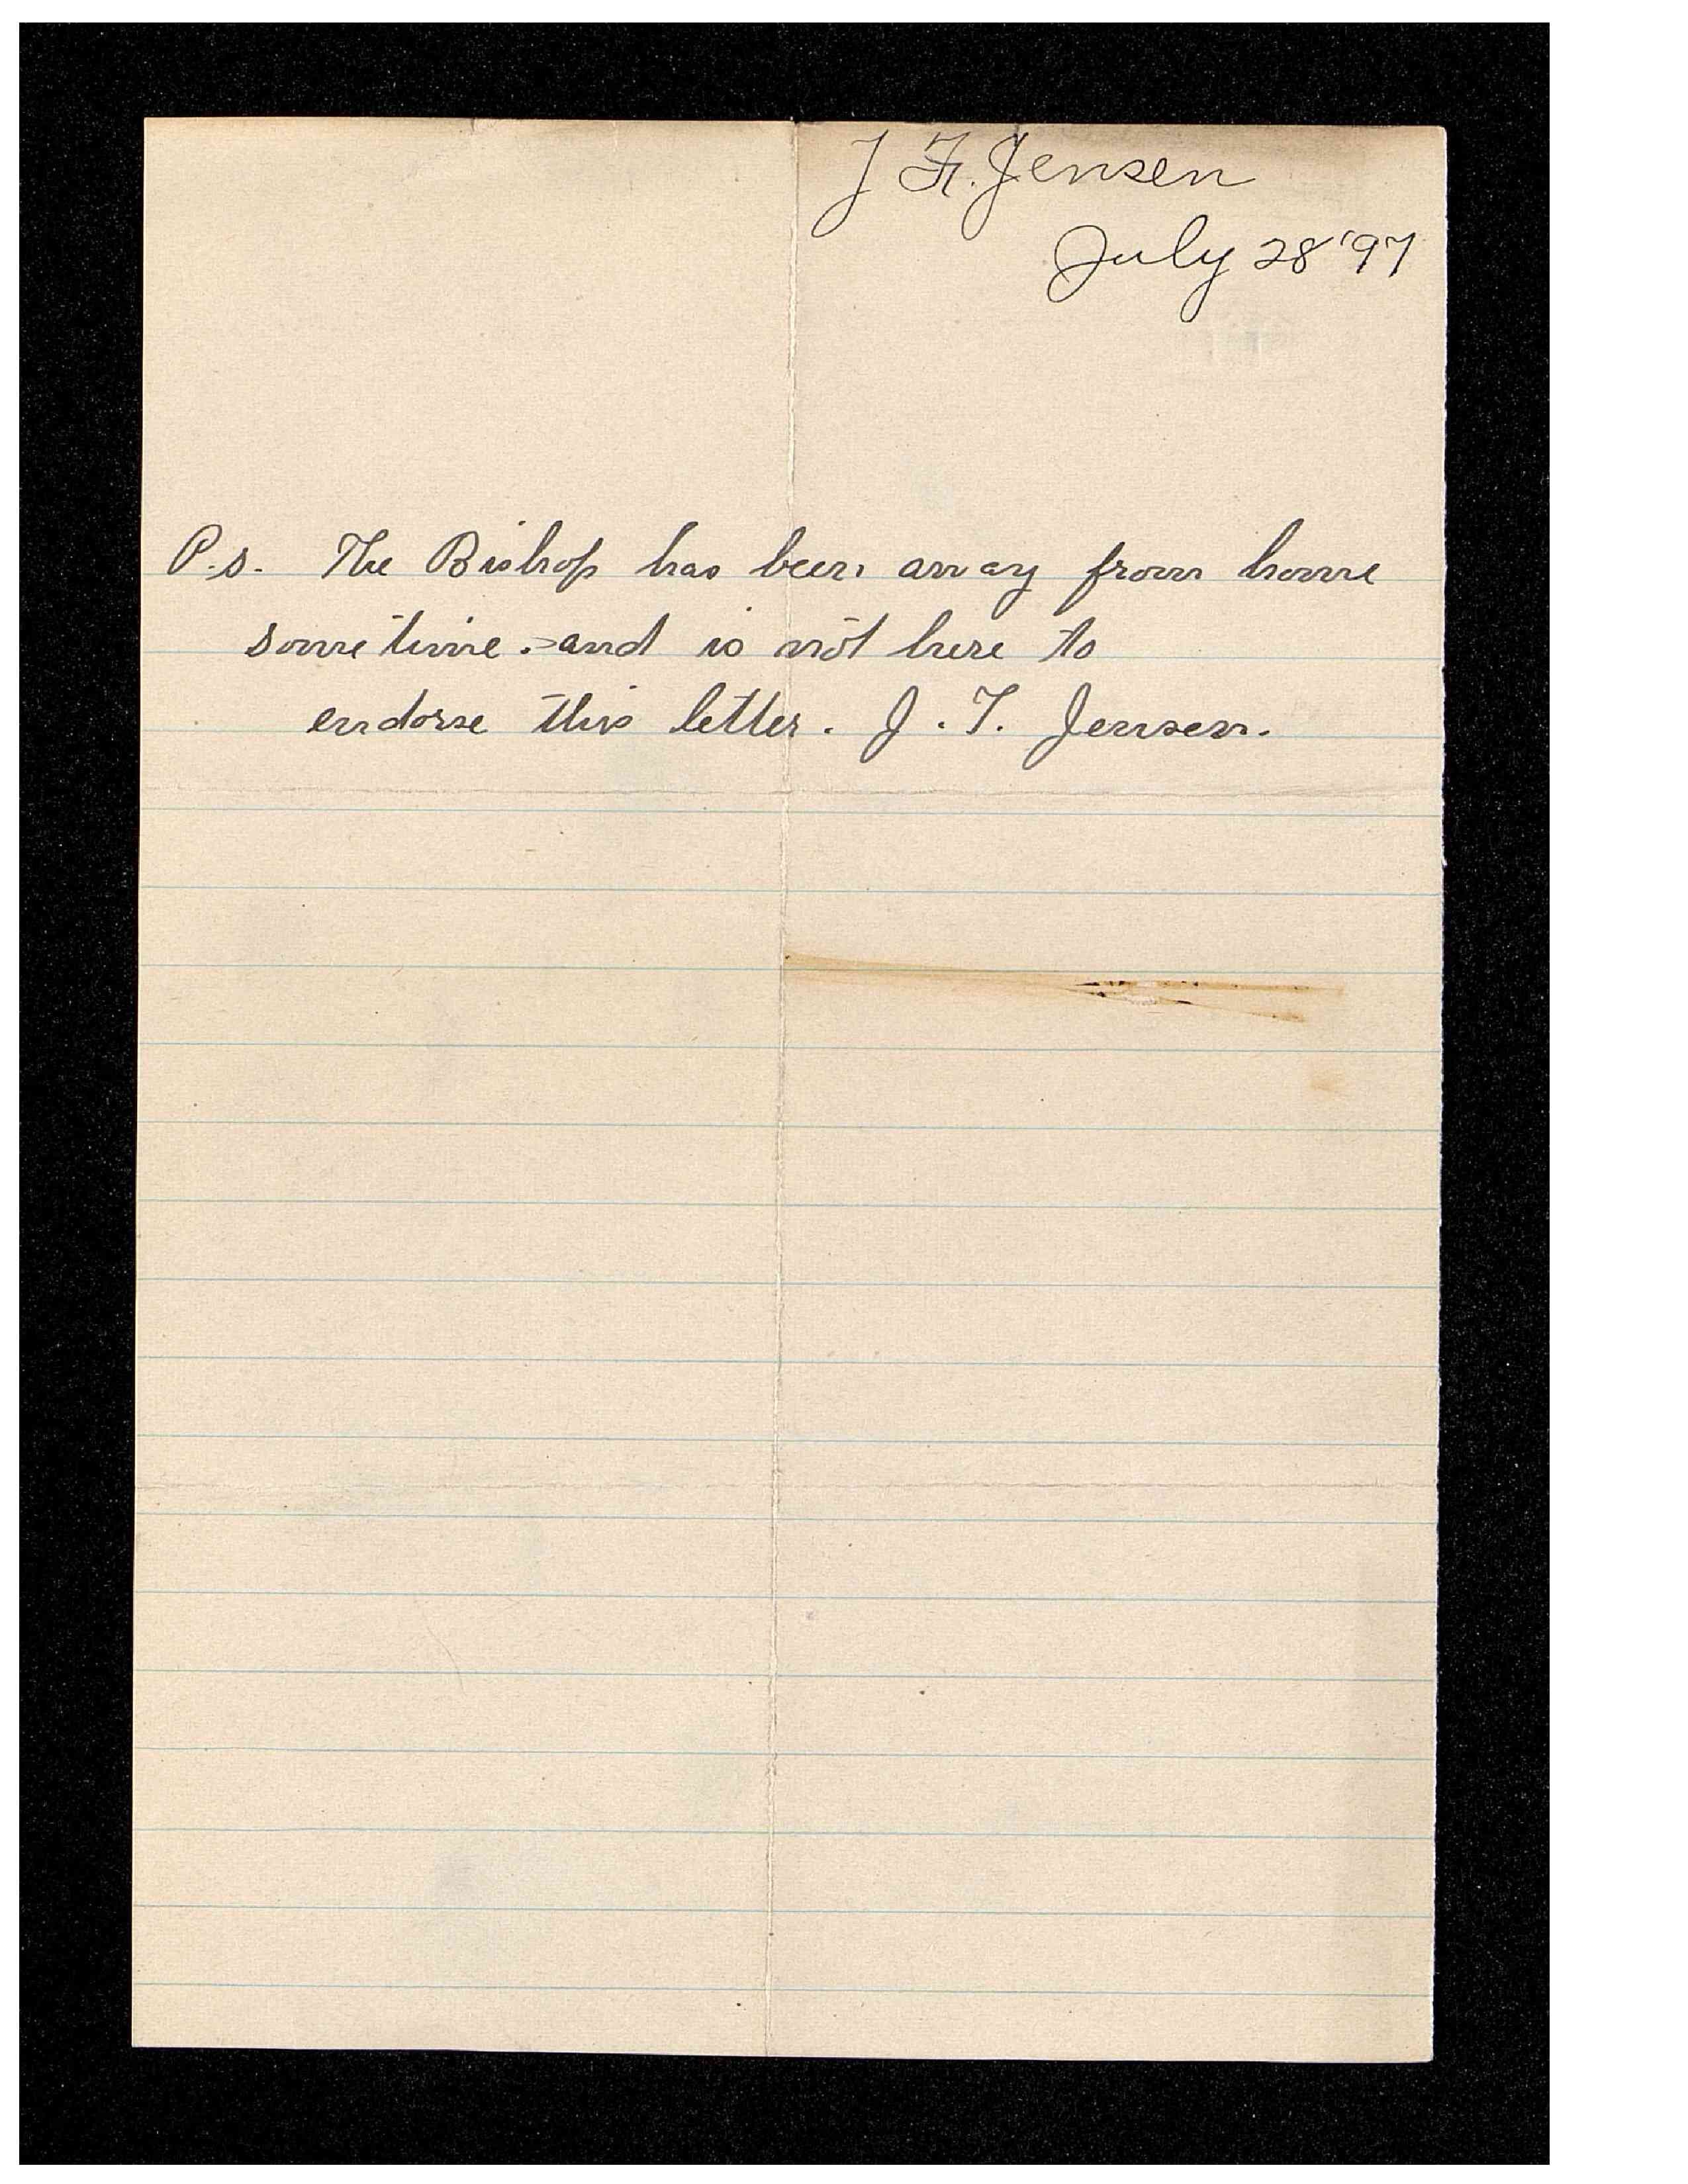 J F. Jensen
July 28 '97
P.s. The Bishop has been away from home
sometime. and is not here to
endorse this letter. J. F. Jensen.